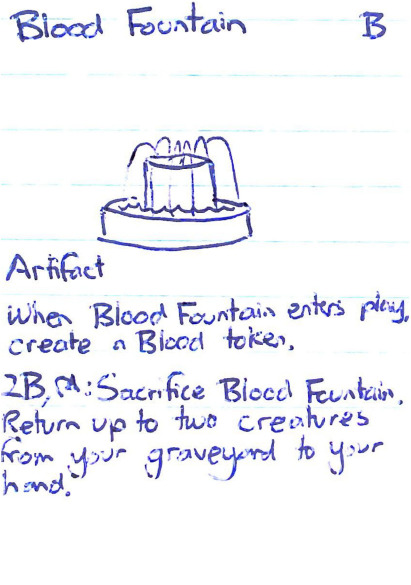 Blood Fountain B
Artifact
When Blood Fountain enters play,
create a Blood token.
2B, : Sacrifice Blood Fountain.
Return up to two creatures
from your graveyard to your
hand.